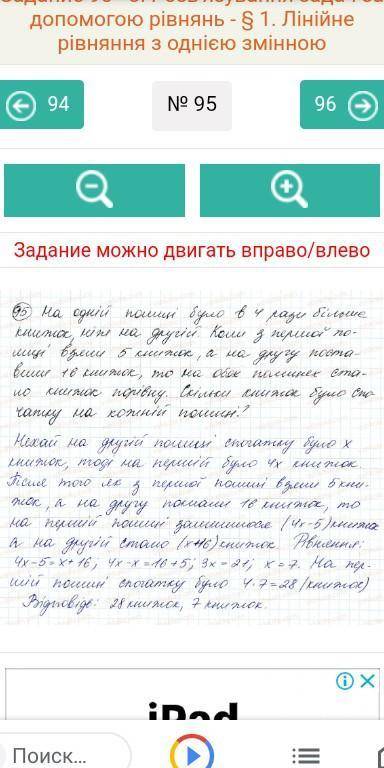 Задание 95 - 3. Розв'язування задач за
допомогою рівнянь - § 1. Лінійне
рівняння з однією змінною
94
№ 95
96
Задание можно двигать вправо/влево
95 На одній полиці було в 4 рази більше
книжок, ніж на другій. Коли з першої по-
лиці взяли 5 книжок, а на другу поста-
вили 16 книжок, то на обох полицях ста-
ло книжок порівну. Скільки книжок було спо-
чатку на кожній полиці?
Нехай на другій полиці спочатку було x
книжок, тоді на першій було 4x книжок.
Після того як з першої полиці взяли 5 кни-
жок, а на другу поклали 16 книжок, то
на першій полиці залишилося (4x-5) книжок
а на другій стало (x+16) книжок. Рівняння:
4x-5=x+16; 4x-x=16+5; 3x=21; x=7. На пер-
шій полиці спочатку було 4·7=28 (книжок)
Відповідь: 28 книжок, 7 книжок.
iPad
Поиск...